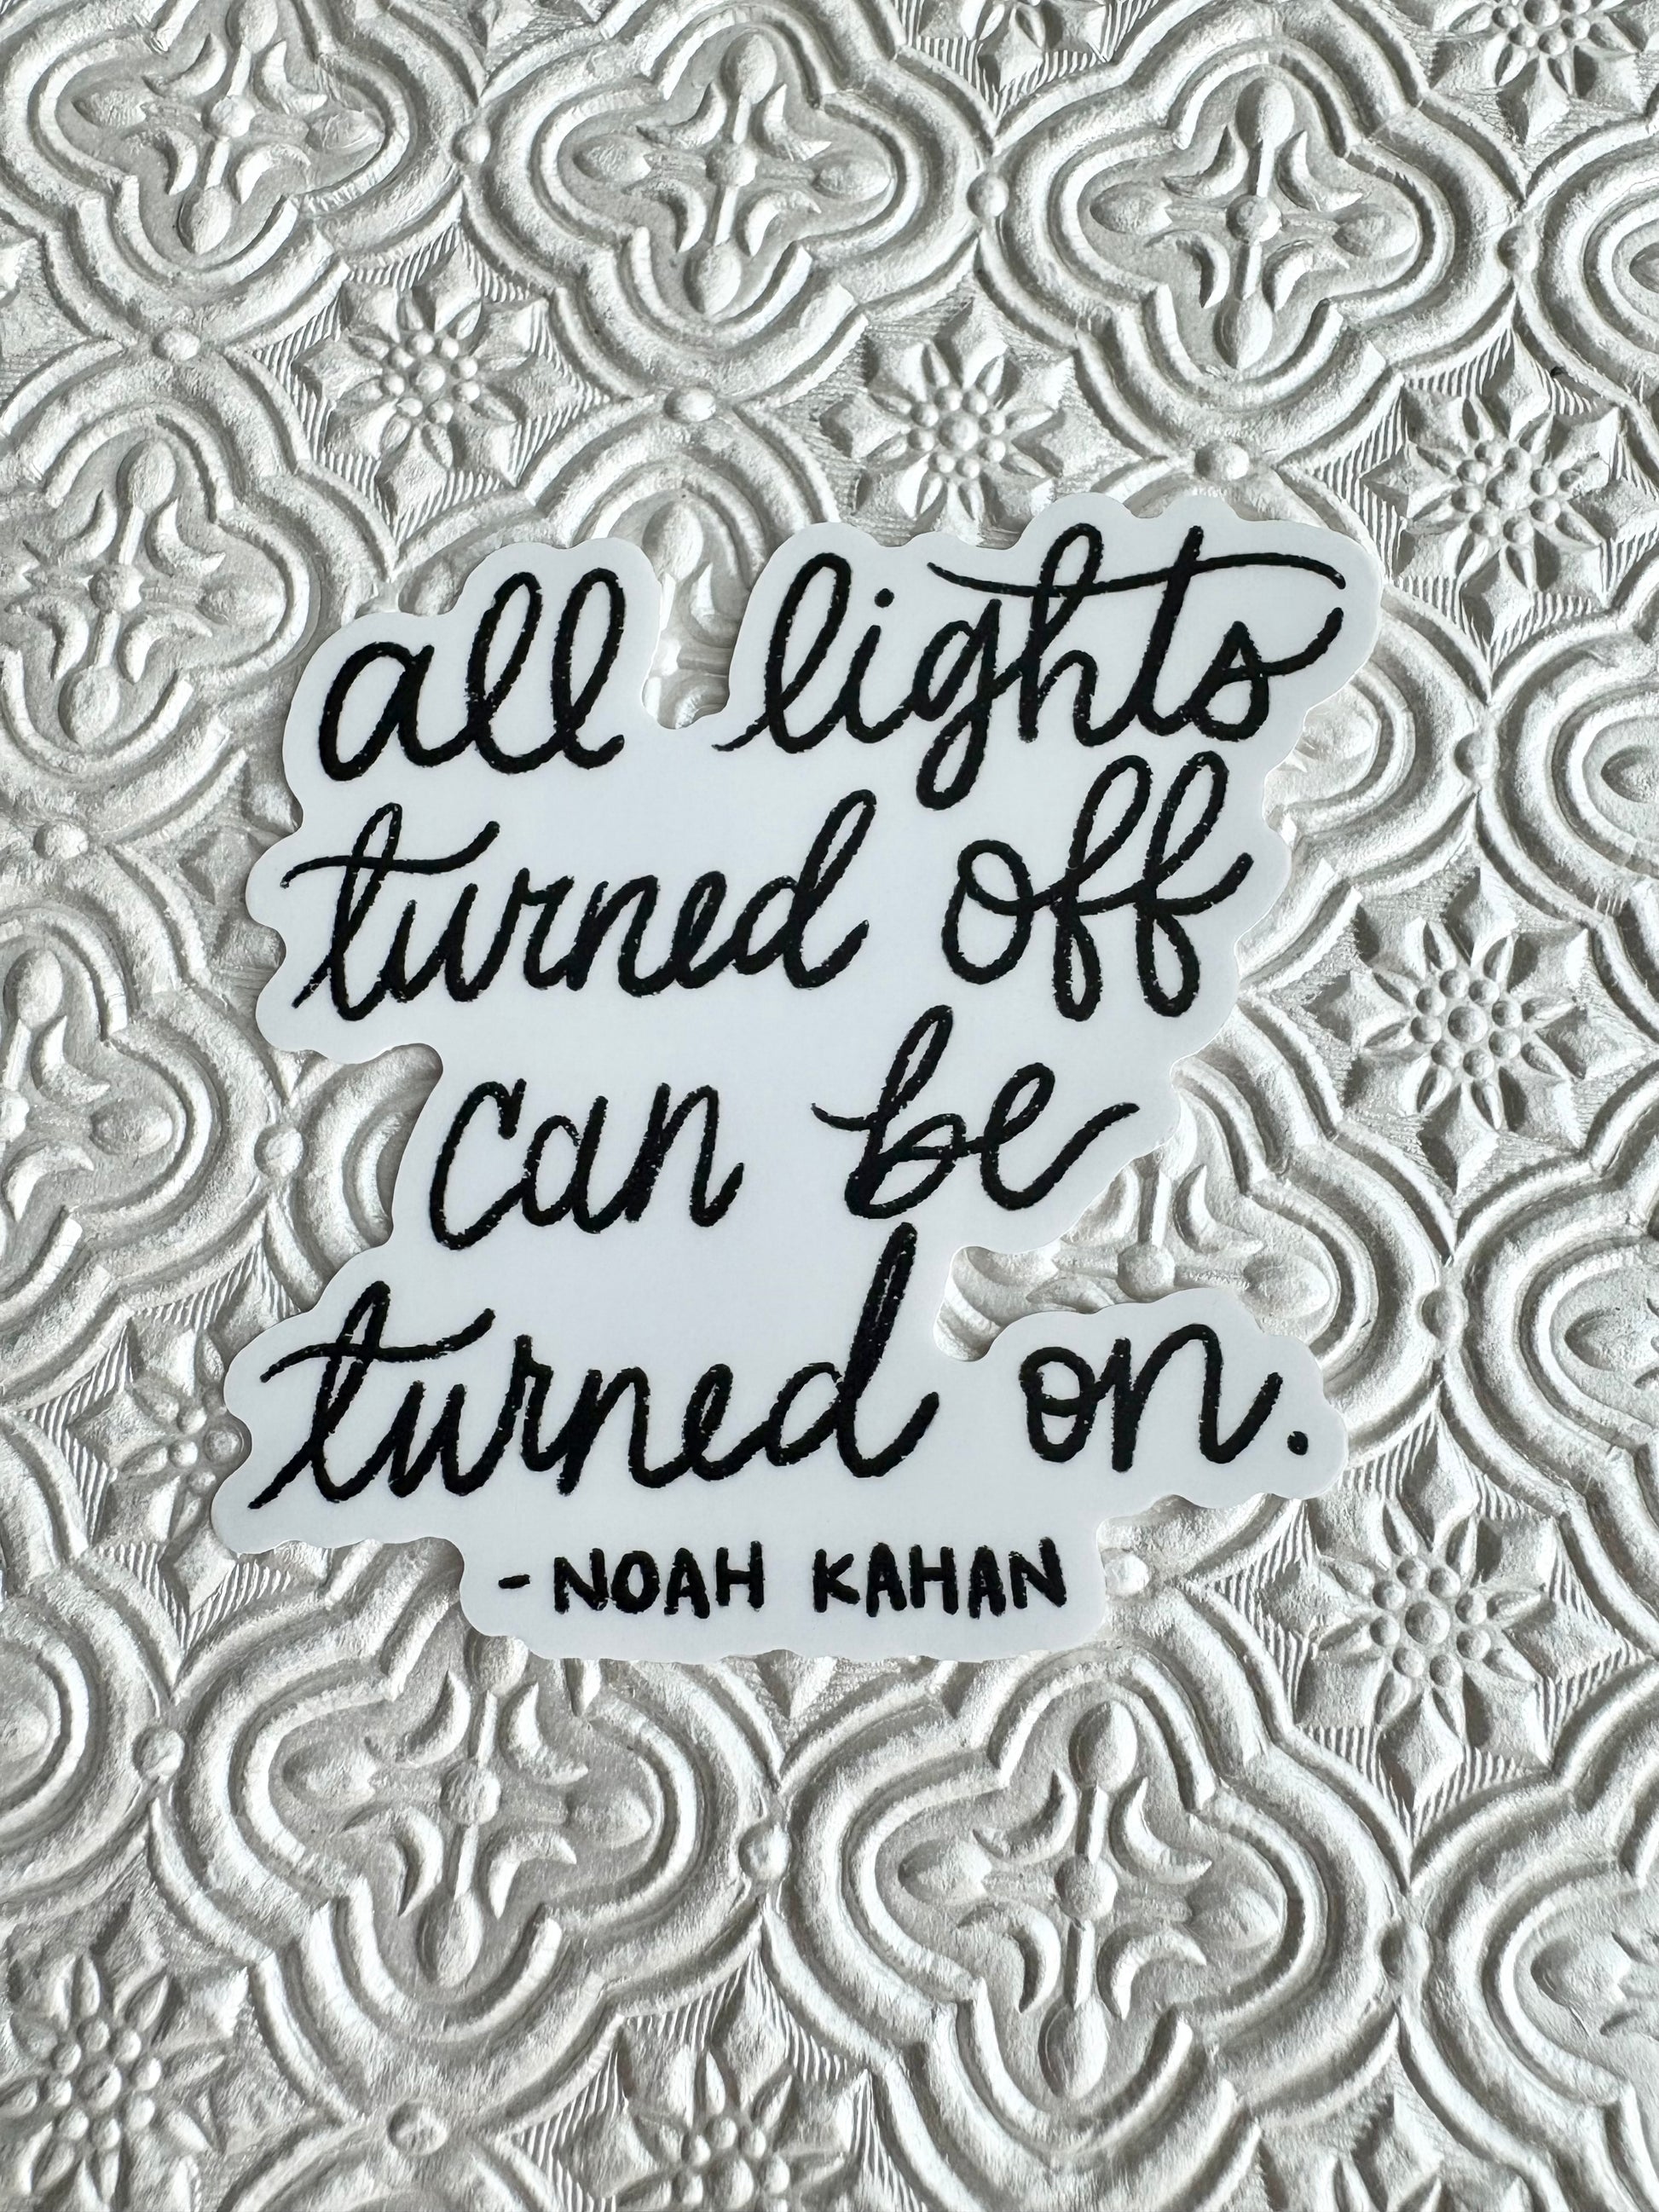 all lights
turned off
can be
turned on.
-NOAH KAHAN